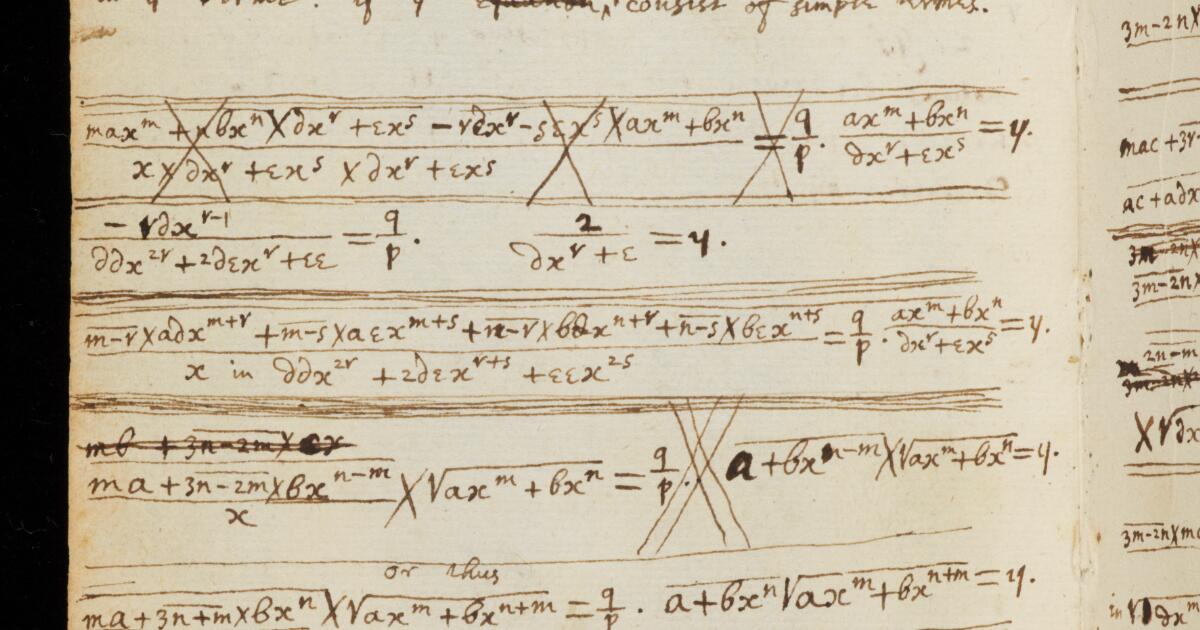 consist of simple termes.
max^m + nbx^n X ∂x^r + εx^s − r∂x^r − sεx^s X ax^m + bx^n / x X ∂x^r + εx^s X ∂x^r + εx^s = q/p. ax^m + bx^n / ∂x^r + εx^s = y.
− r∂x^{r−1} / ∂∂x^{2r} + 2∂εx^r + εε = q/p. 2 / ∂x^r + ε = y.
m−r X a∂x^{m+r} + m−s X aεx^{m+s} + n−r X b∂x^{n+r} + n−s X bεx^{n+s} / x in ∂∂x^{2r} + 2∂εx^{r+s} + εεx^{2s} = q/p. ax^m + bx^n / ∂x^r + εx^s = y.
mb + 3n−2m X
ma + 3n−2m X bx^{n−m} / x X √ax^m + bx^n = q/p. a + bx^{n−m} X √ax^m + bx^n = y.
or thus
ma + 3n+m X bx^n X √ax^m + bx^{n+m} = q/p. a + bx^n √ax^m + bx^{n+m} = y.
3m−2n X
mac + 3r
ac + a∂x
3m−2n X
3m−2n X
2n−m
X √∂x
3m−2n X ma